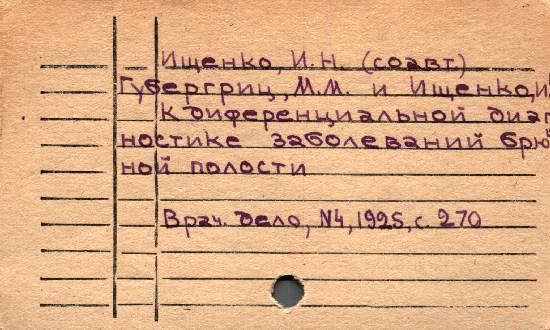 Ищенко, И.Н. (соавт)
Губергриц, М.М. и Ищенко, И
К диференциальной диаг
ностике заболеваний брю
ной полости
Врач. дело, №4, 1925, с. 270